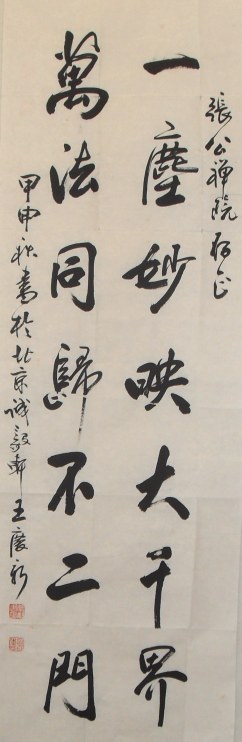 張公禅院存正
一塵妙映大千界
萬法同歸不二門
甲申秋書於北京誠毅軒王慶新